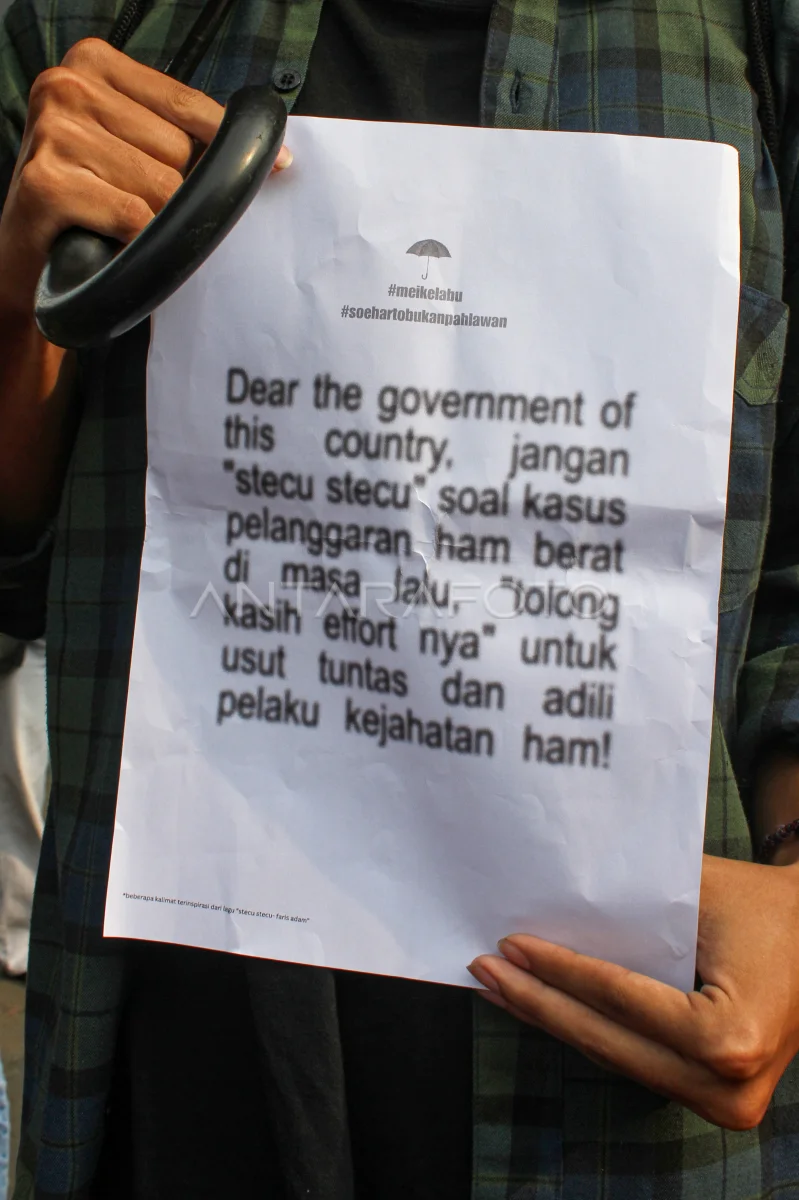 #meikelabu
#soehartobukanpahlawan
Dear the government of
this country, jangan
"stecu stecu" soal kasus
pelanggaran ham berat
di masa lalu, "tolong
kasih effort nya" untuk
usut tuntas dan adili
pelaku kejahatan ham!
ANTARAFOTO
*beberapa kalimat terinspirasi dari lagu "stecu stecu- faris adam"